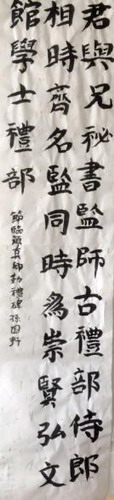 君與兄秘書監師古禮部侍郎
相時齊名監同時為崇賢弘文
館學士禮部
節臨嚴真卿勤禮碑孫田野